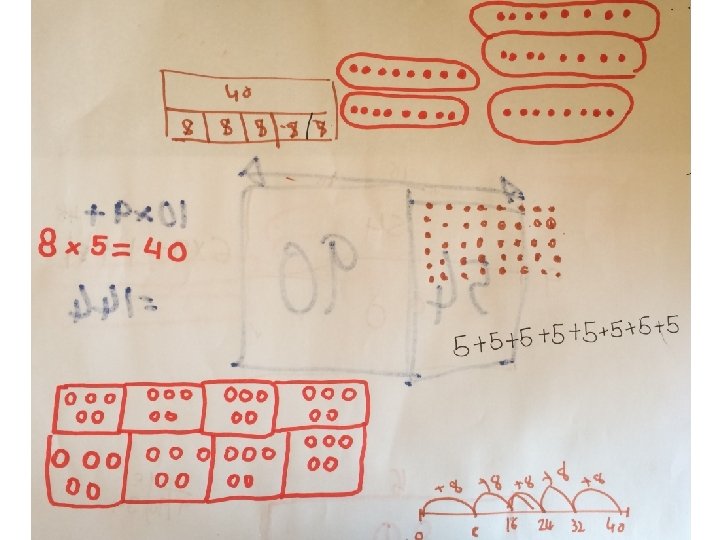 40
8 8 8 8 8
8 × 5 = 40
5+5+5+5+5+5+5+5
+8 +8 +8 +8 +8
0 8 16 24 32 40